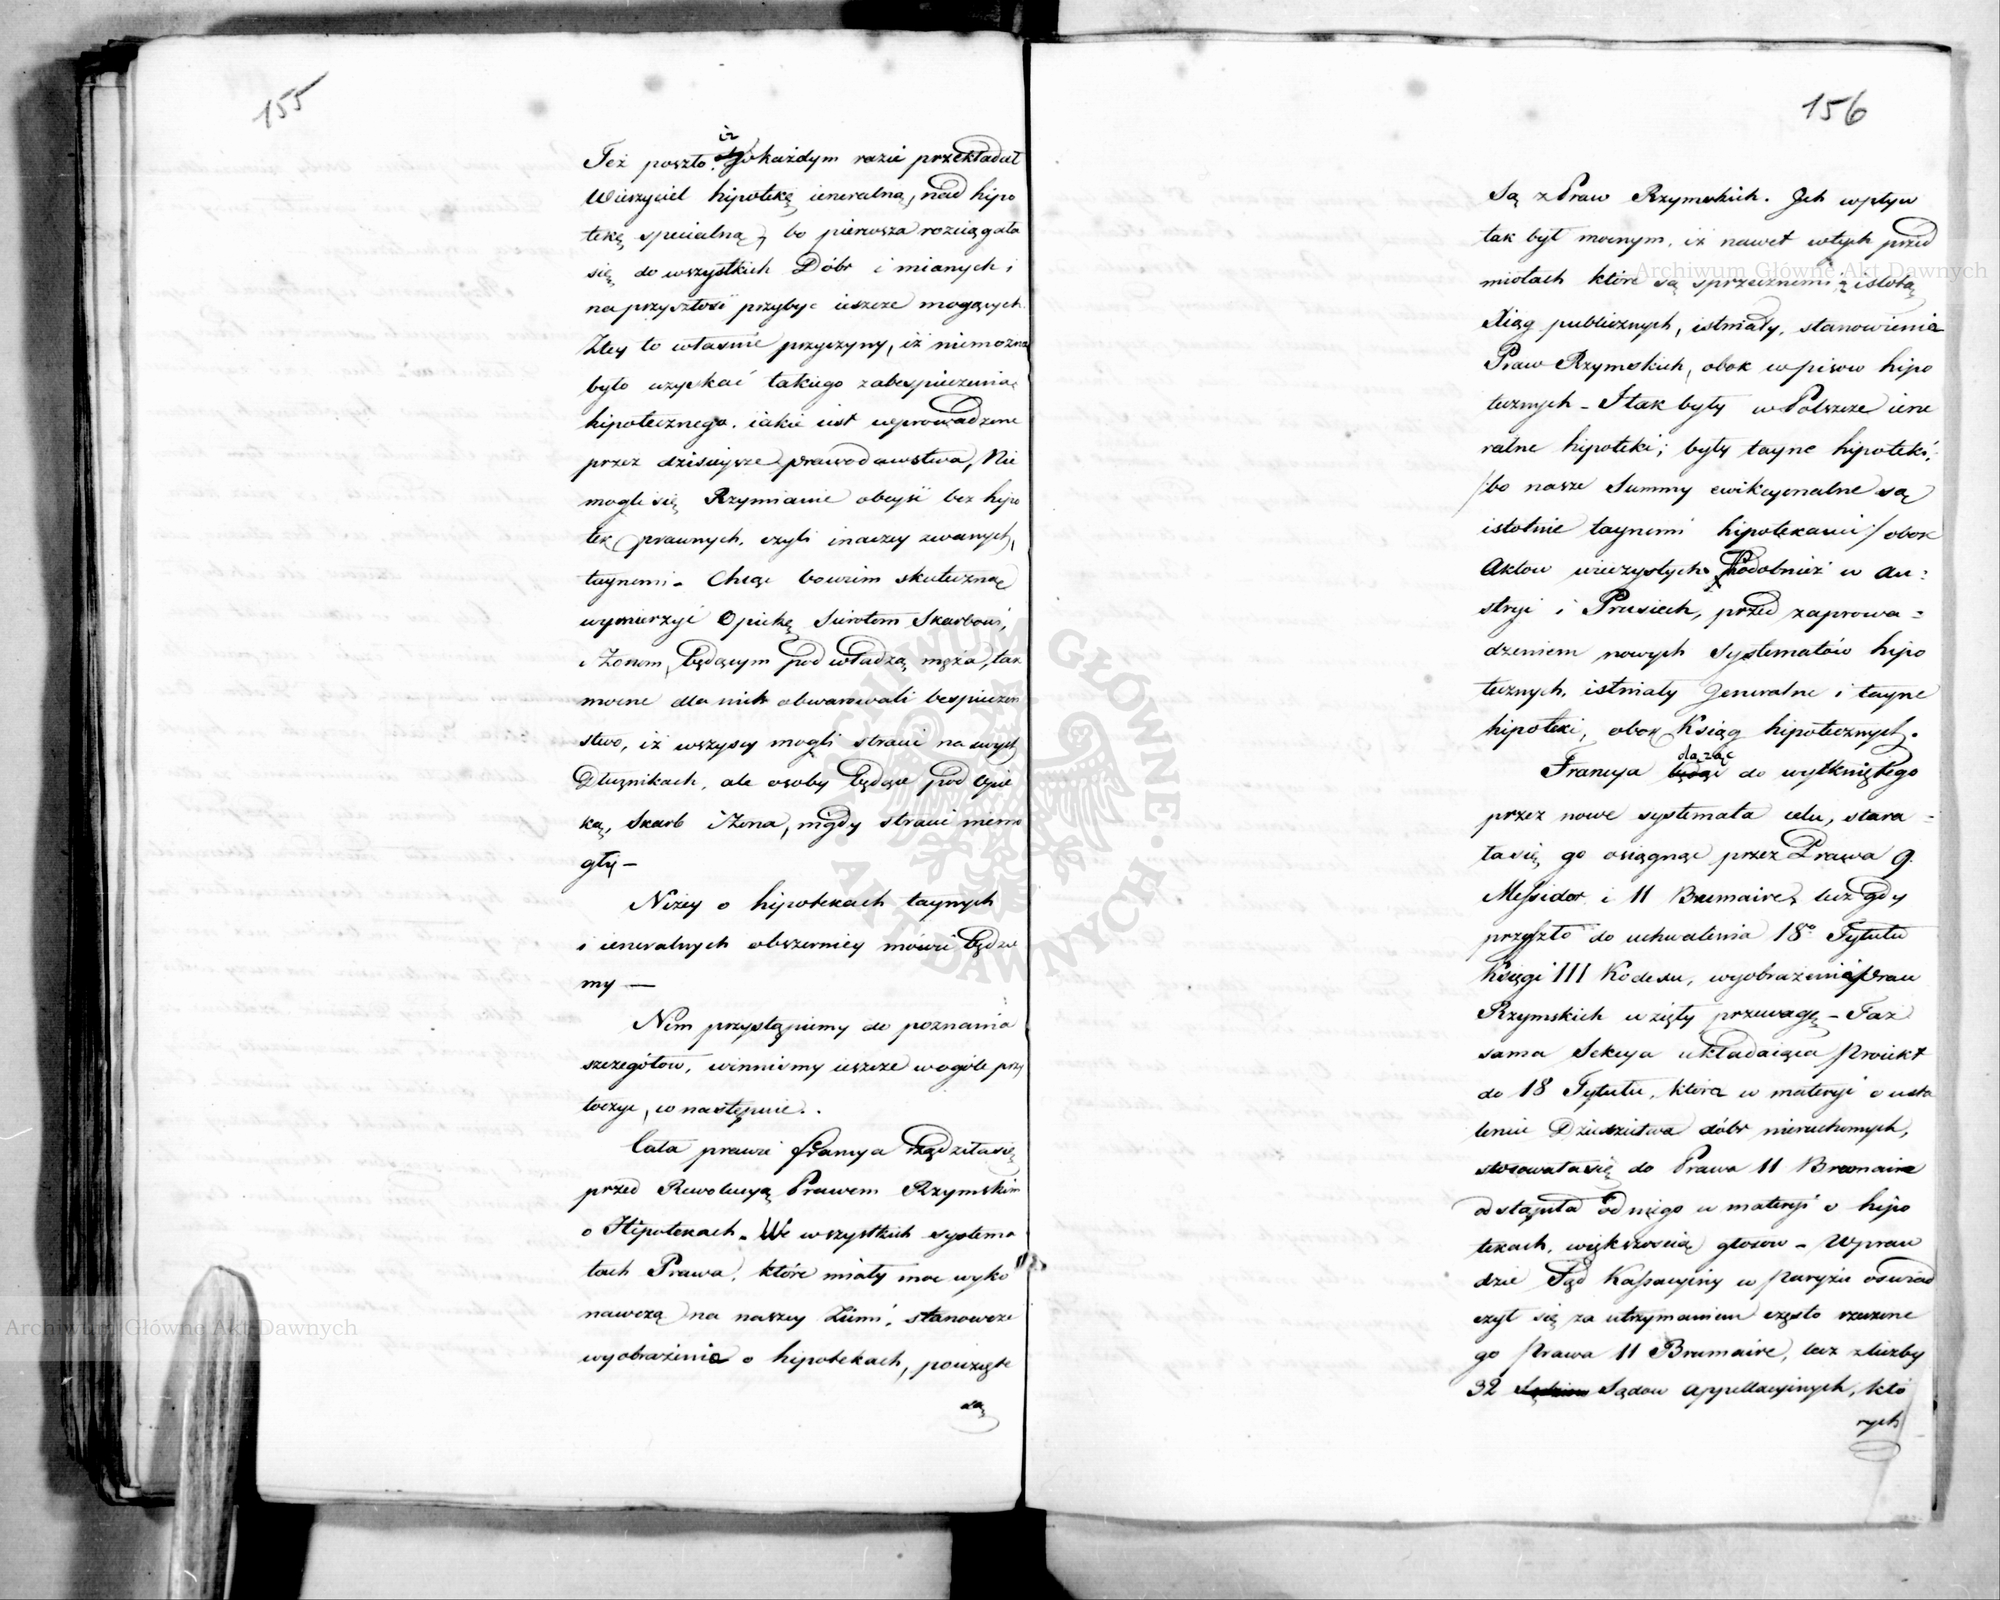 155
Też poszło, iż w każdym razie przekładał
Wierzyciel hipotekę ieneralną, nad hipo
tekę specialną, bo pierwsza roziągała
się do wszystkich Dóbr i mianych i
na przyszłość przybyć ieszcze mogących.
Z tey to właśnie przyczyny, iż niemożna
było uzyskać takiego zabespieczenia
hipotecznego, iakie iest wprowadzone
przez dzisieysze prawodawstwa, Nie
mogli się Rzymianie obeyść bez hipo
tek prawnych, czyli inaczey zwanych,
taynemi - Chcąc bowiem skuteczną
wymierzyć Opiekę Sierotom Skarbowi,
i Żonom, będącym pod władzą męża, tak
mocne dla nich obwarowali bespieczeń
stwo, iż wszyscy mogli stracić na swych
Dłużnikach, ale osoby będące pod Opie
ką, Skarb i Żona, nigdy stracić niemo
gły -
Niżey o hipotekach taynych
i ieneralnych obszerniey mówić będzie
my —
Nim przystąpiemy do poznania
szczegółów, winniśmy ieszcze wogóle przy
toczyć, co następuie.
Cała prawie francya rządziła się
przed Rewolucyą Prawem Rzymskim
o Hipotekach. We wszystkich systema
tach Prawa, które miały moc wyko
nawczą na naszey Ziemi, stanowcze
wyobrażenia o hipotekach, powzięte
są
156
Są z Praw Rzymskich. Ich wpływ
tak był mocnym, iż nawet w tych przed
miotach które są sprzecznemi z istotą
Xiąg publicznych, istniały, stanowienia
Praw Rzymskich, obok wpisow hipo
tecznych - I tak były w Polszcze iene
ralne hipoteki; były tayne hipoteki,
/bo nasze Summy ewikcyonalne są
istotnie taynemi hipotekami/ obok
Aktow wieczystych. Podobnież w Au:
stryi i Prusiech, przed zaprowa=
dzeniem nowych Systematów hipo
tecznych, istniały Jeneralne i tayne
hipoteki, obok Ksiąg hipotecznych.
dążąc
Francya do wytkniętego
przez nowe systemata celu, stara=
ła się go osiągnąć przez Prawa 9.
Messidor i 11 Brumaire, lecz gdy
przyszło do uchwalenia 18º Tytułu
Księgi III Kodexu, wyobrażenia Praw
Rzymskich wzięły przewagę - Taż
sama Sekcya układaiąca Proiekt
do 18 Tytułu, która w materyi o usta
leniu Dziedzictwa dóbr nieruchomych,
stosowała się do Prawa 11 Brumaire
odstąpiła od niego w materyi o hipo
tekach, większością głosow - Wpraw
dzie Sąd Kassacyiny w Paryżu oświad
czył się za utrzymaniem często rzeczone
go Prawa 11 Brumaire, lecz z liczby
32 Sądow Appellacyinych, któ
rych
Archiwum Główne Akt Dawnych
Archiwum Główne Akt Dawnych
ARCHIWUM GŁÓWNE AKT DAWNYCH